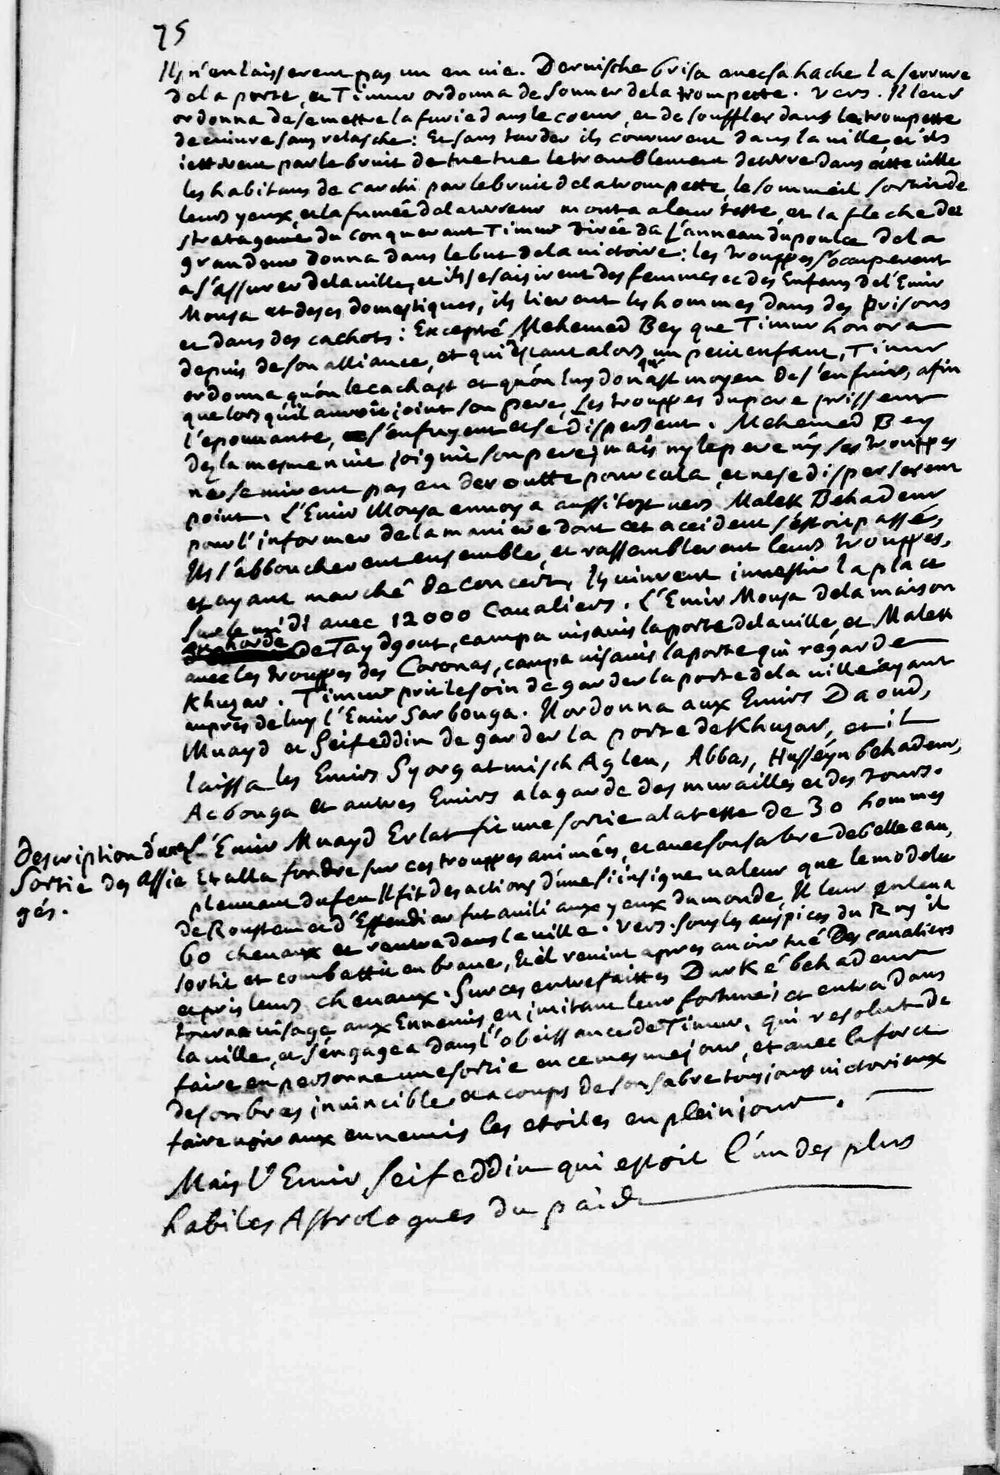 75
Ils n'en laisserent pas un en vie. Dervische brisa avec sa hache la serrure
de la porte, et Timur ordonna de sonner de la trompette. Vers. Il leur
ordonna de se mettre la furie dans le coeur, et de souffler dans la trompette
de cuivre sans relasche: Et sans tarder ils coururent dans la ville, et ils
jetterent par le bruit de tue tue le tremblement de terre dans cette ville
les habitans de Carchi par le bruit de la trompette, le sommeil sortit de
leurs yeux, et la fumée de la terreur monta a leur teste, et la fleche de
stratageme du conquerant Timur tirée de l'anneau du poulce de la
grandeur donna dans le but de la victoire: les trouppes s'occuperent
a s'assurer de la ville, et ils se saisirent des femmes et des Enfans de l'Emir
Mousa et de ses domestiques, ils lierent les hommes dans des prisons
et dans des cachots: Excepté Mehemed Bey que Timur honora
depuis de son alliance, et qui estant alors un petit enfant, Timur
ordonna qu'on le cachast et qu'on luy donast moyen de s'enfuir, afin
que lors qu'il auroit joint son pere, les trouppes du pere prissent
l'epouvante, s'enfuyent et se dispersent. Mehemed Bey
des la mesme nuit joignit son pere, mais ny le pere ny ses trouppes
ne se mirent pas en deroutte pour cela, et ne se disperserent
point. L'Emir Mousa envoya aussitost vers Malek Behadeur
pour l'informer de la maniere dont cet accident s'estoit passé,
Ils s'abboucherent ensemble, et rassemblerent leurs trouppes,
et ayant marché de concert, Ils vinrent investir la place
sur le midi avec 12000 Cavaliers. L'Emir Mousa de la maison
de Taydgout, campa vis avis la porte de la ville, et Malek
avec les trouppes des Coronas, campa vis avis la porte qui regarde
Khuzar. Timur prit le soin de garder la porte de la ville ayant
aupres de luy l'Emir Sarbouga. Il ordonna aux Emirs Daoud,
Muayd et Seifeddin de garder la porte de Khuzar, et il
laissa les Emirs Syorgatmisch Aglen, Abbas, Husséyn behadeur,
Acbouga et autres Emirs a la garde des murailles et des tours.
Description d'une
Sortie des Assie
gés.
L'Emir Muayd Erlat fit une sortie a la teste de 30 hommes
Et alla fondre sur ces trouppes animées, et avec son sabre de belle eau,
pleuvant du feu Il fit des actions d'une si insigne valeur que le modele
de Roustem et d'Effendiar fut avili aux yeux du monde, Il leur enleva
60 chevaux et rentra dans la ville. Vers. sous les auspices du Roy il
sortit et combattit en brave, Et il revint apres avoir tué Des cavaliers
et pris leurs chevaux. Sur ces entrefaittes Durké behadeur
tourna visage aux Ennemis en imitant leur fortune; et entra dans
la ville, et s'engagea dans l'obeissance de Timur, qui resolut de
faire en personne une sortie en ce mesme jour, et avec la force
de son bras invincible et a coups de son sabre tousjours victorieux
faire voir aux ennemis les etoiles en plein jour.
Mais l'Emir Seifeddin qui estoit l'un des plus
habiles Astrologues du païs